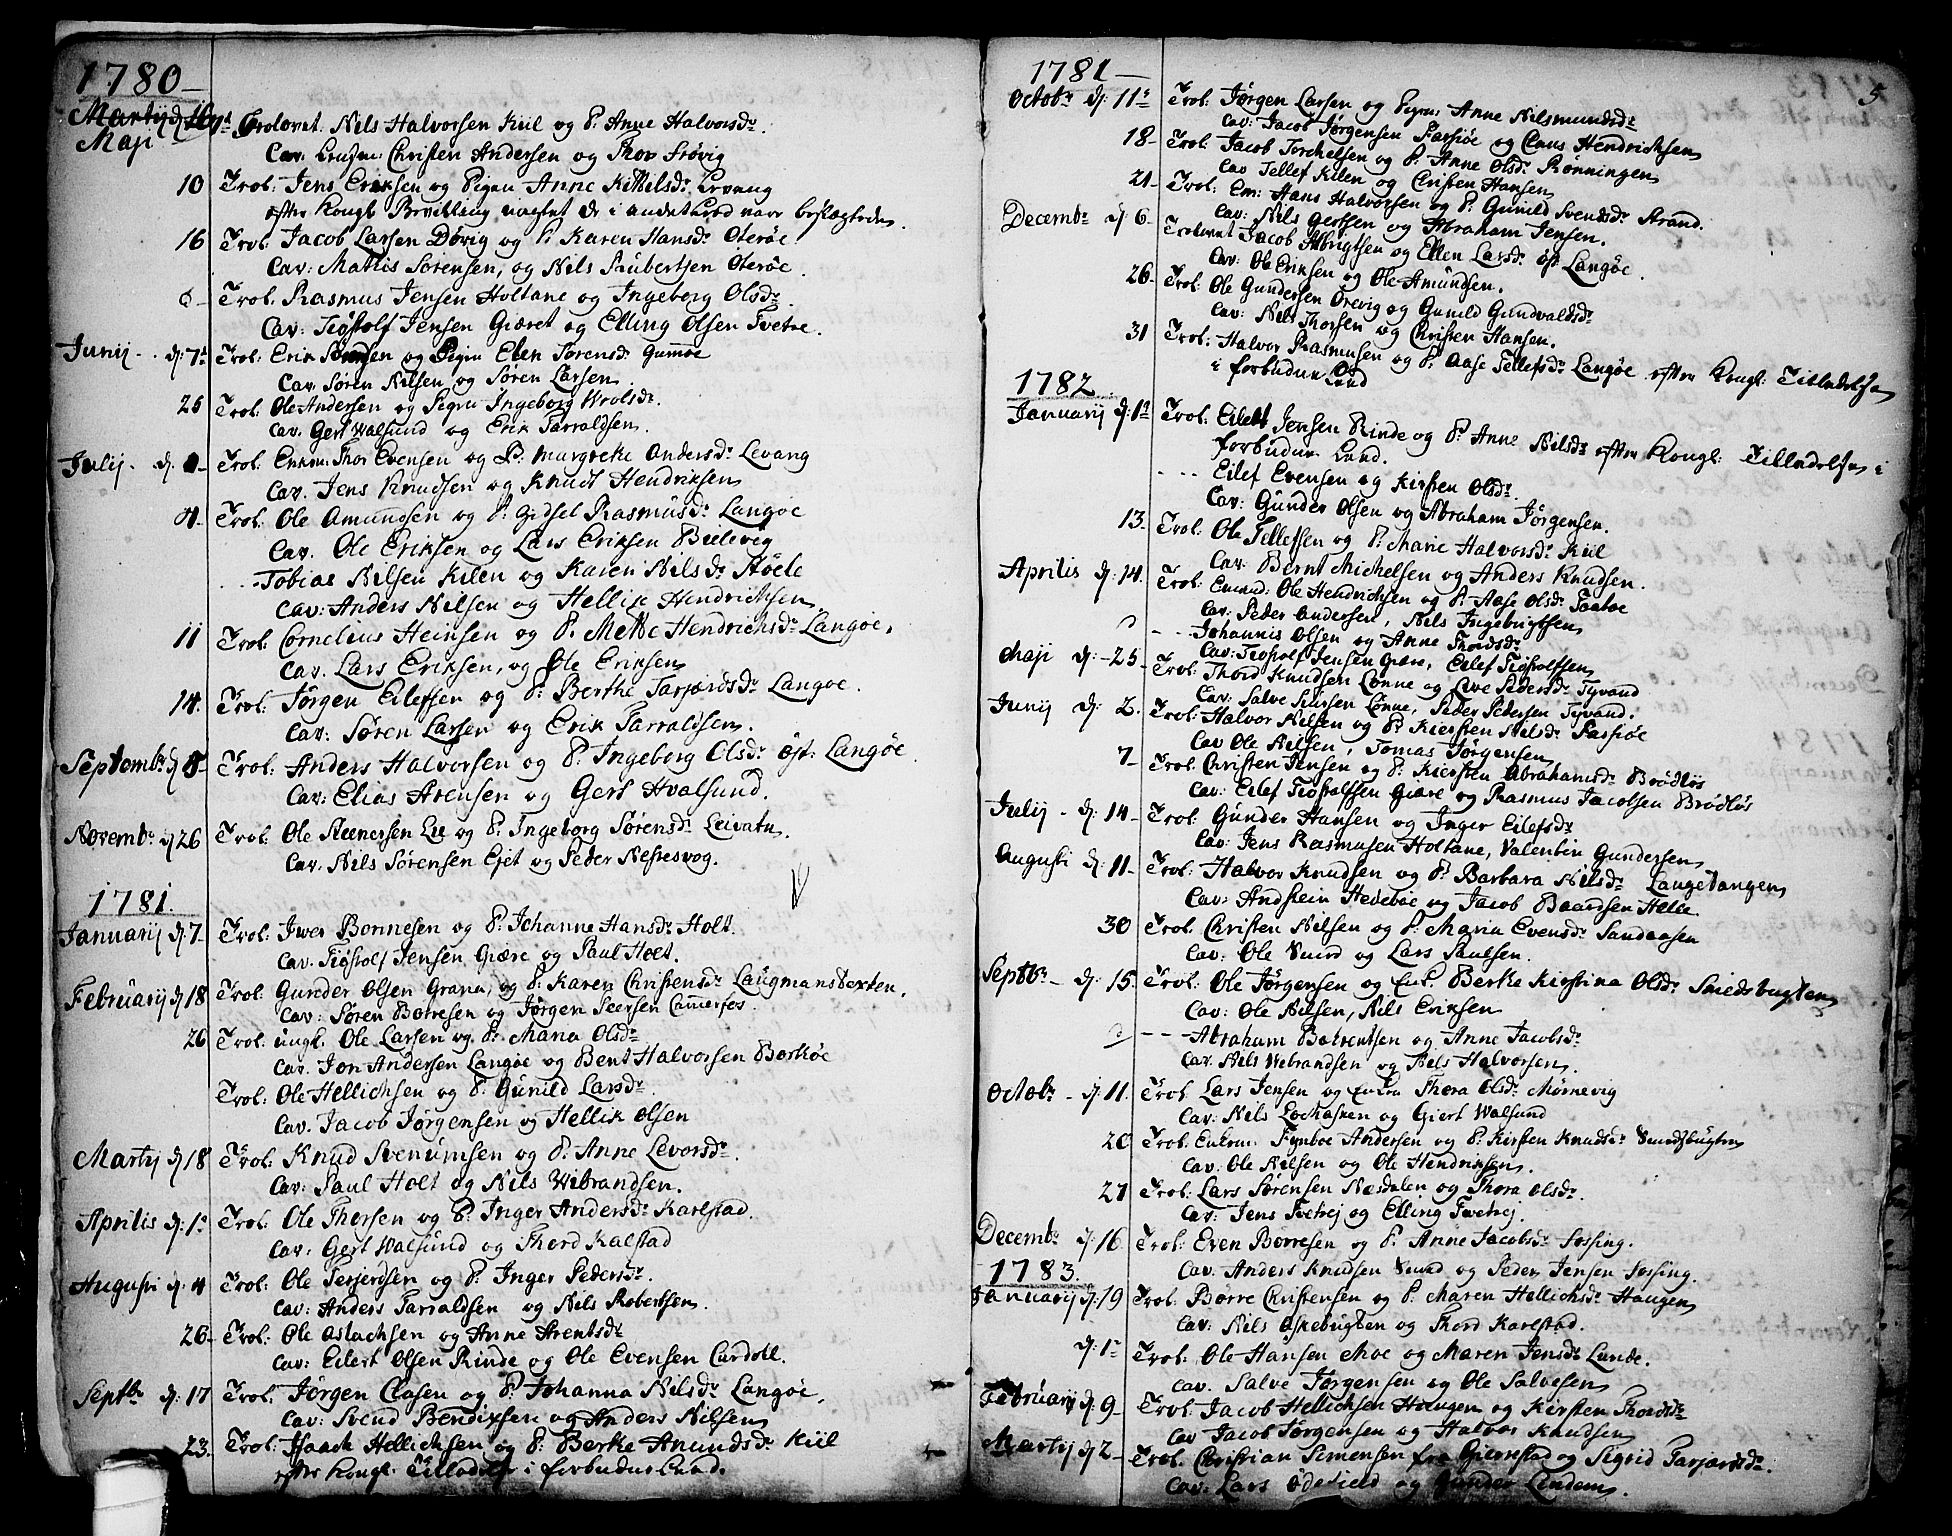 1780
Maji Trolovet. Nils Halvorsen Kiil og P. Anne Halvorsdr.
Cav: Christen Andersen og Thor
10 Trol: Jens Eriksen og Pigen Anne Kittelsdr. Levang
efter Kongl. Bevilling
16 Trol. Jacob Larsen Døvig og P. Karen Hansdr. Oterøe
Cav: Mathis Sørensen, og Nils Oterøe.
Trol. Rasmus Jensen Holtane og Ingeborg Olsdr.
Cav: Tiøstolf Jensen Giæret og Elling Olsen Tvetre.
Junij d: 7de Trol: Erik og Pigen Elen Sørensdr. Gumøe
Cav. Søren Nilsen og Søren Larsen.
25 Trol: Ole Andersen og Pigen Ingeborg Wrolsdr.
Cav. Gert Walsund og Erik Tarraldsen.
Julij d. Trol: Enkm: Thor Evensen og P. Margrethe Andersdr. Levang
Cav. Jens Knudsen og Knudt Hendriksen
4. Trol: Ole Amundsen og P. Gidsel Rasmusdr. Langøe
Cav. Ole Eriksen og Lars Eriksen Bielevig
Tobias Nilsen Kilen og Karen Nilsdr. Støele
Cav: Anders Nilsen og Hellik Hendricksen.
11 Trol: Cornelius Heinsen og P. Mette Hendrichsdr. Langøe.
Cav. Lars Eriksen, og Ole Eriksen
14. Trol: Jørgen Eilefsen og P. Berthe Tarjerdsdr. Langøe.
Cav: Søren Larsen og Erik Tarraldsen.
Septembr. d. Trol: Anders Halvorsen og P. Ingeborg Olsdr. øst: Langøe.
Cav: Elias Arensen og Gert Hvalsund.
Novembr. d 26 Trol: Ole Steenersen Lie og P. Ingeborg Sørensdr.
Cav: Nils Sørensen Eiet og Peder
1781.
Januarij d: 7. Trol: Iwer Bonnesen og P. Johanne Hansdr. Holt.
Cav. Tiøstolf Jensen Giære og Paul Holt.
Februarij d 18 Trol: Gunder Olsen Grana, og P. Karen Christensdr.
Cav: Søren Børresen og Jørgen
26 Trol: ungk. Ole Larsen og P. Maria Olsdr.
Cav. Jon Andersen Langøe og Bent Halvorsen Barkøe
Trol: Ole Hellichsen og P. Gunild Larsdr.
Cav. Jacob Jørgensen og Hellik Olsen
Martij d 18 Trol: Knud Svenumsen og P. Anne Levorsdr.
Cav: Paul Holt og Nils Wibrandsen.
Aprilis d: 1ste Trol: Ole Thorsen og P. Inger Andersdr. Karlstad.
Cav: Gert Walsund og Thord Kalstad
Augusti d: 4 Trol: Ole Terjerdsen og P. Inger Pedersdr.
Cav: Anders Tarraldsen og Nils Robertsen.
26. Trol: Ole Aslachsen og Anne Arentsdr.
Cav: Eilert Olsen Rinde og Ole Evensen Cardoll.
Septbr. d: 17 Trol. Jørgen Clasen og P. Johanna Nilsdr. Langøe.
Cav: Svend Bendixsen og Anders Nilsen
23. Trol: Isaach Hellichsen og P. Berthe Anundsdr. Kiil
efter Kongl. Tilladelse i forbuden Leed.
5
1781
Octobr. d: 11te Trol: Jørgen Larsen og Pigen: Anne
Cav: Jacob Jørgensen Farsiøe og Claus Hendricksen
18 Trol: Jacob Torchelsen og P. Anne Olsdr. Rønningen
Cav Tellef Kilen og Christen Hansen
21 Trol: Em: Hans Halvorsen og P. Gunild Svendsdr. Strand.
Cav: Nils Gertsen og Abraham Jensen.
Decembr. d: 6 Trolovet Jacob og Ellen Larsdr. øst Langøe.
Cav: Ole Eriksen og Ole Amundsen.
26. Trol: Ole Gundersen Ørevig og Gunild Gundvaldsdr.
Cav: Nils Thorsen og Christen Hansen.
31 Trol: Halvor Rasmusen og P. Aase Tellefsdr. Langøe efter Kongl: Tilladelse
i forbuden Leed
1782
Januarij d: 1ste Trol: Eilert Jensen Rinde og P. Anne Nilsdr. efter Kongl: Tilladelse i
forbuden Leed.
Eilef Evensen og Kirsten Olsdr.
Cav: Gunder Olsen og Abraham Jørgensen.
13. Trol: Ole Tellefsen og P. Marie Halvorsdr. Kiil
Cav: Bernt Michelsen og Anders Knudsen.
Aprilis d: 14. Trol: Ole Hendrichsen og P. Aase Olsdr. Taatøe
Cav: Peder Andersen, Nils Ingebrigtsen
Johannis Olsen og Anne Thordsdr.
Cav: Tiøstolf Jensen Giære, Eilef Tiøstolfsen
Maji d: 25 Trol: Thord Knudsen Lønne og Live Pedersdr. Tyvand
Cav: Salve Lønne, Peder Pedersen Tyvand.
Junij d: 2. Trol: Halvor Nilsen og P. Kiersten Nilsdr. Farsiøe
Cav Ole Nilsen, Tomas Jørgensen
7 Trol: Christen Jensen og P. Kiersten Abrahamsdr. Brødløs
Cav: Eilef Tiøstolfsen Giære og Rasmus Jacobsen Brødløs
Julij d: 14 Trol: Gunder Hansen og Inger Eilefsdr.
Cav: Jens Rasmusen Holtane, Valentin Gundersen
Augusti d: 11 Trol: Halvor Knudsen og P. Barbara Nilsdr. Langetangen
Cav: Andstein Hedebøe og Jacob Baardsen Helle.
30 Trol. Christen Nilsen og P. Maria Evensdr. Sandaasen
Cav: Ole og Lars Paulsen.
Septbr. d: 15. Trol: Ole Jørgensen og Berthe Kirstina Olsdr. Smedsbugten
Cav: Ole Nilsen, Nils Eriksen
Abraham Berentsen og Anne Jacobsdr.
Cav. Nils Webrandsen og Nils Halvorsen.
Octobr. d. 11. Trol Lars Jensen og Enken Thora Olsdr. Mørnevig
Cav: Nils og Giert Walsund
20 Trol: Enkem: Fynboe Andersen og P. Kirsten Knudsdr.
Cav: Ole Nilsen og Ole Hendriksen.
27 Trol: Lars Sørensen Næsdalen og Thora Olsdr.
Cav: Jens Tvetrej og Elling Tvetrej.
Decembr. d: 16 Trol: Even Børresen og P. Anne Jacobsdr. Fossing.
Cav: Anders Knudsen og Peder Jensen Fossing.
1783.
Januarij d: 19 Trol: Børre Christensen og P. Maren Hellichsdr. Haugen
Cav: Nils Askebugten og Thord Karlstad.
d: 1ste Trol: Ole Hansen Moe og Maren Jensdr. Lunde.
Cav. Salve Jørgensen og Ole Salvesen
Februarij d: 9 Trol: Jacob Hellichsen Haugen og Kirsten Thordsdr.
Cav Jacob Jørgensen og Halvor Knudsen
Martij d 2 Trol: Christian Simensen fra Gierestad og Sigrid Tarjerdsdr.
Cav: Lars og Gunder Lindem.